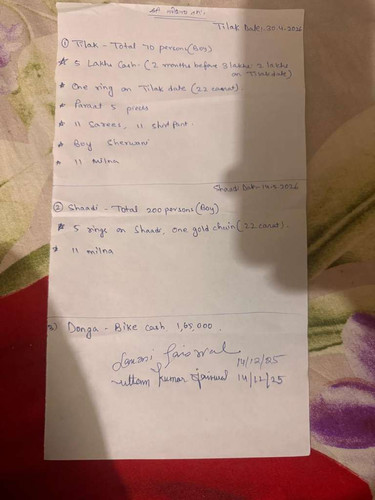 Tilak Date: 20.4.2026
① Tilak - Total 70 persons (Boy)
* 5 Lakhs Cash. (2 months before 3 lakhs 2 lakhs
on Tilak date)
* One ring on Tilak date (22 carat).
* Parat 5 pieces
* 11 Sarees, 11 shirt pant.
* Boy Sherwani
* 11 milna
Shaadi Date-
② Shaadi - Total 200 persons (Boy)
* 5 rings on Shaadi, one gold chain (22 carat).
* 11 milna
3) Donga - Bike cash 1,65,000.
Jaiswal 14/12/25
uttam kumar Jaiswal 14/12/25